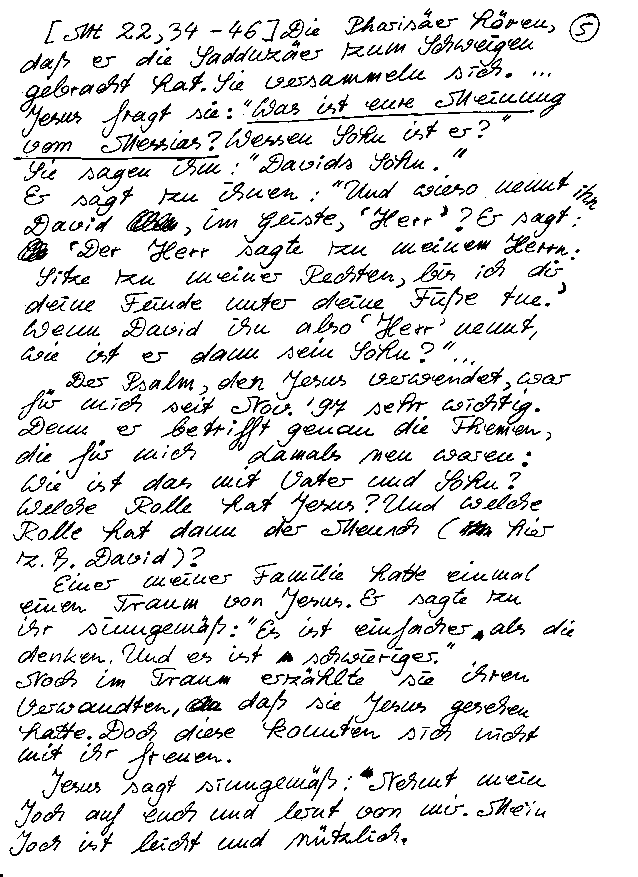 [Mt 22,34-46] Die Pharisäer hören, 5
daß er die Sadduzäer zum Schweigen
gebracht hat. Sie versammeln sich. ...
Jesus fragt sie: "Was ist eure Meinung
vom Messias? Wessen Sohn ist er?"
Sie sagen ihm: "Davids Sohn."
Er sagt zu ihnen: "Und wieso nennt ihn
David, im Geiste, 'Herr'? Er sagt:
'Der Herr sagte zu meinem Herrn:
Sitze zu meiner Rechten, bis ich dir
deine Feinde unter deine Füße tue.'
Wenn David ihn also 'Herr' nennt,
wie ist er dann sein Sohn?"...
Der Psalm, den Jesus verwendet, war
für mich seit Nov. '97 sehr wichtig.
Denn er betrifft genau die Themen,
die für mich damals neu waren:
Wie ist das mit Vater und Sohn?
Welche Rolle hat Jesus? Und welche
Rolle hat dann der Mensch (hier
z. B. David)?
Einer meiner Familie hatte einmal
einen Traum von Jesus. Er sagte zu
ihr sinngemäß: "Es ist einfacher, als die
denken. Und es ist schwieriger."
Noch im Traum erzählte sie ihren
Verwandten, daß sie Jesus gesehen
hatte. Doch diese konnten sich nicht
mit ihr freuen.
Jesus sagt sinngemäß: "Nehmt mein
Joch auf euch und lernt von mir. Mein
Joch ist leicht und nützlich.